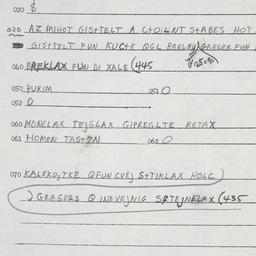 020 $
030 AZ MIHOT GIS+TELT A C+OILNT S+ABES HOT
GIS+TELT FUN KUC+E QGL BARLEY/GRAESER FUN
040 BREKLAX FUN DI XALE (445
050 PURIM 051 0
052 0
060 MONELAX TEJGLAX GIPREGLTE RETAX
061 HOMEN TAS+N 062 0
070 KALEKO,TKE QFUN CVEJ S+TIKLAX HOLC )
) GRAGERS Q INEVEJNIG S+TEJNELAX (435